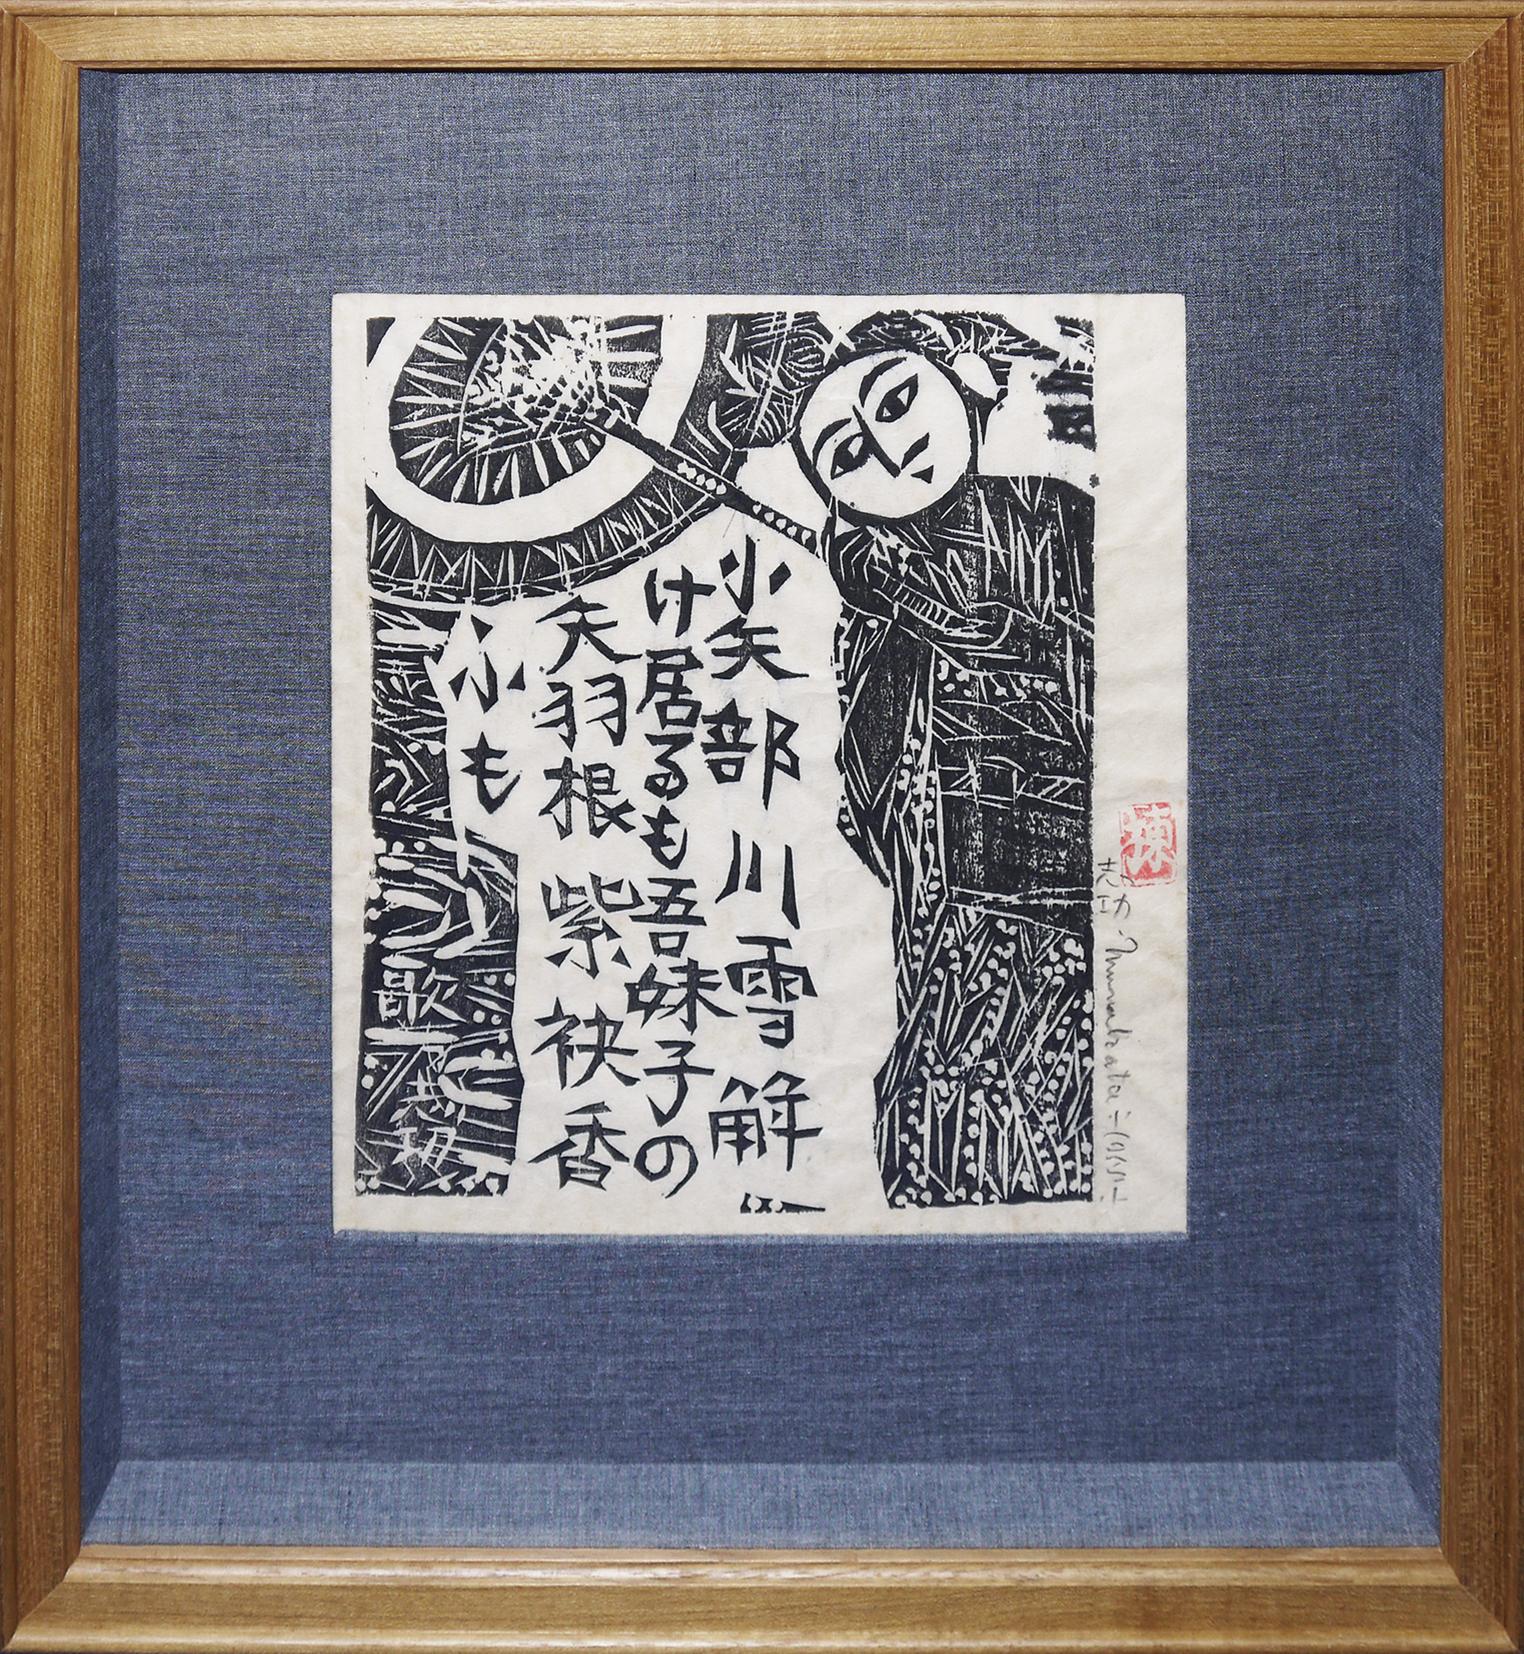 小矢部川雪解
け居るも吾妹子の
矢羽根紫袂香
ふも
歌
志功
棟
志功 Munakata